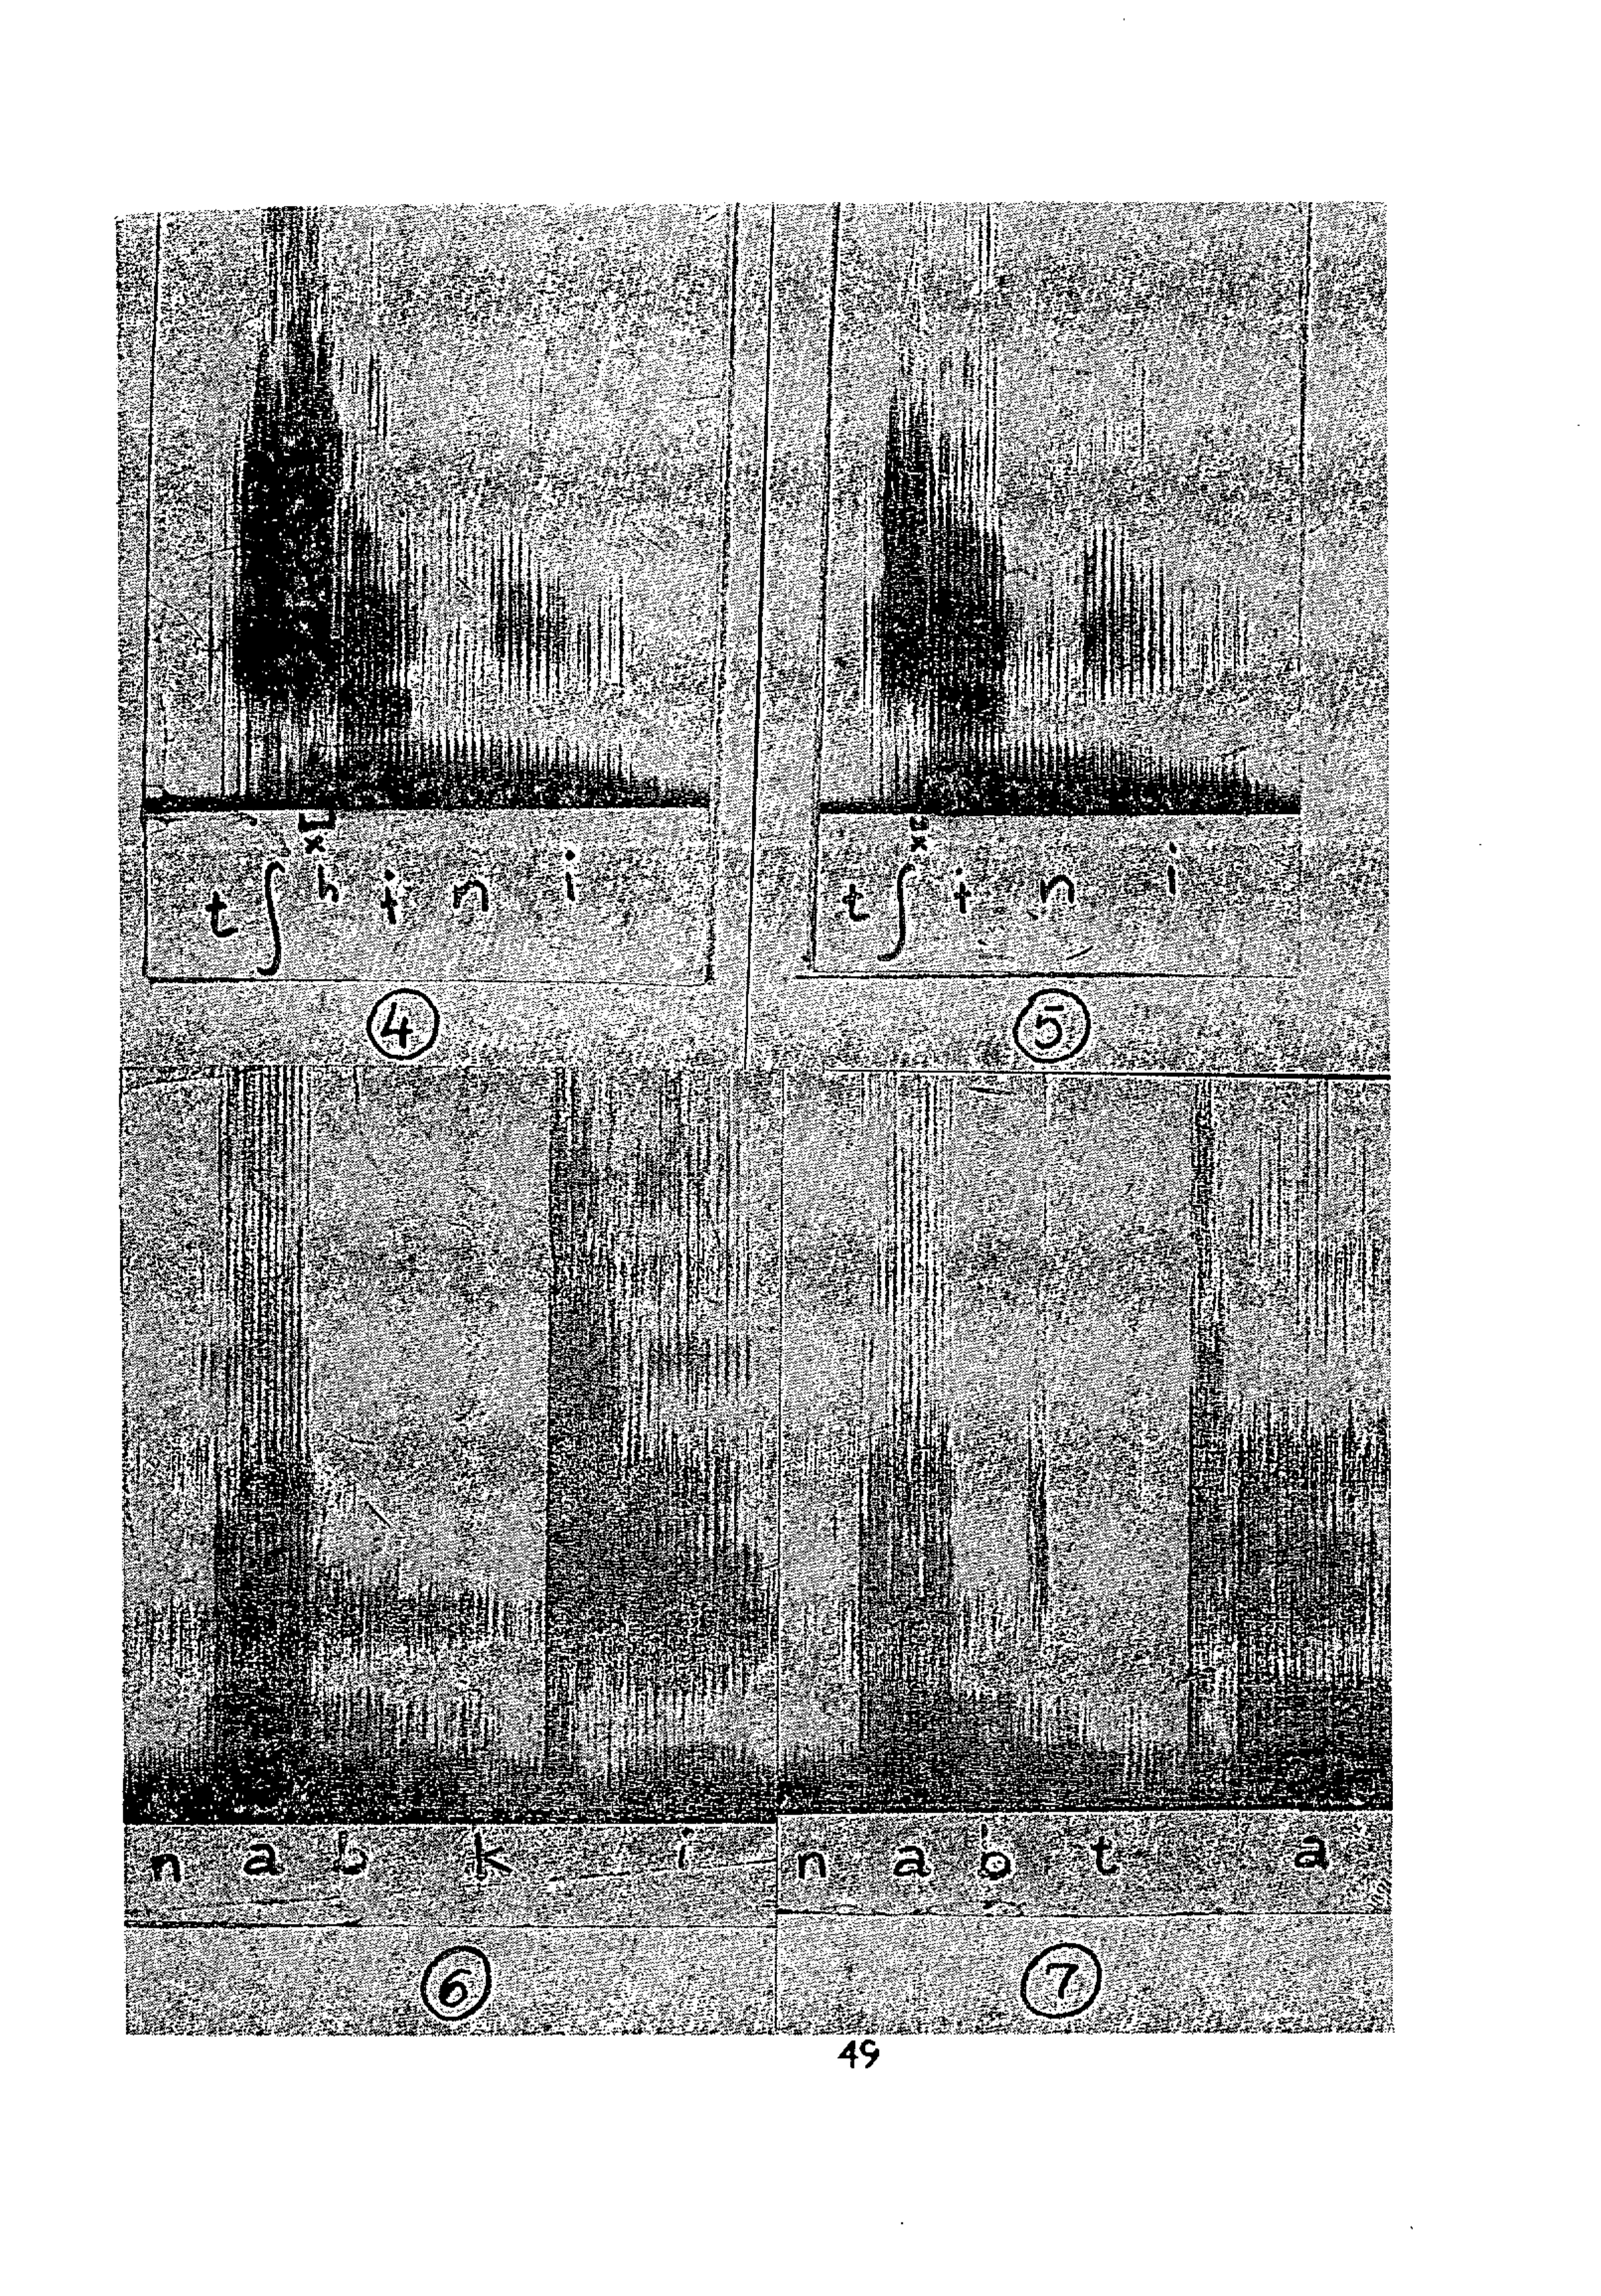 [x]
t ʃ h ɨ n i
④
x
t ʃ ɨ n i
⑤
n a b k i
⑥
n a b t a
⑦
49